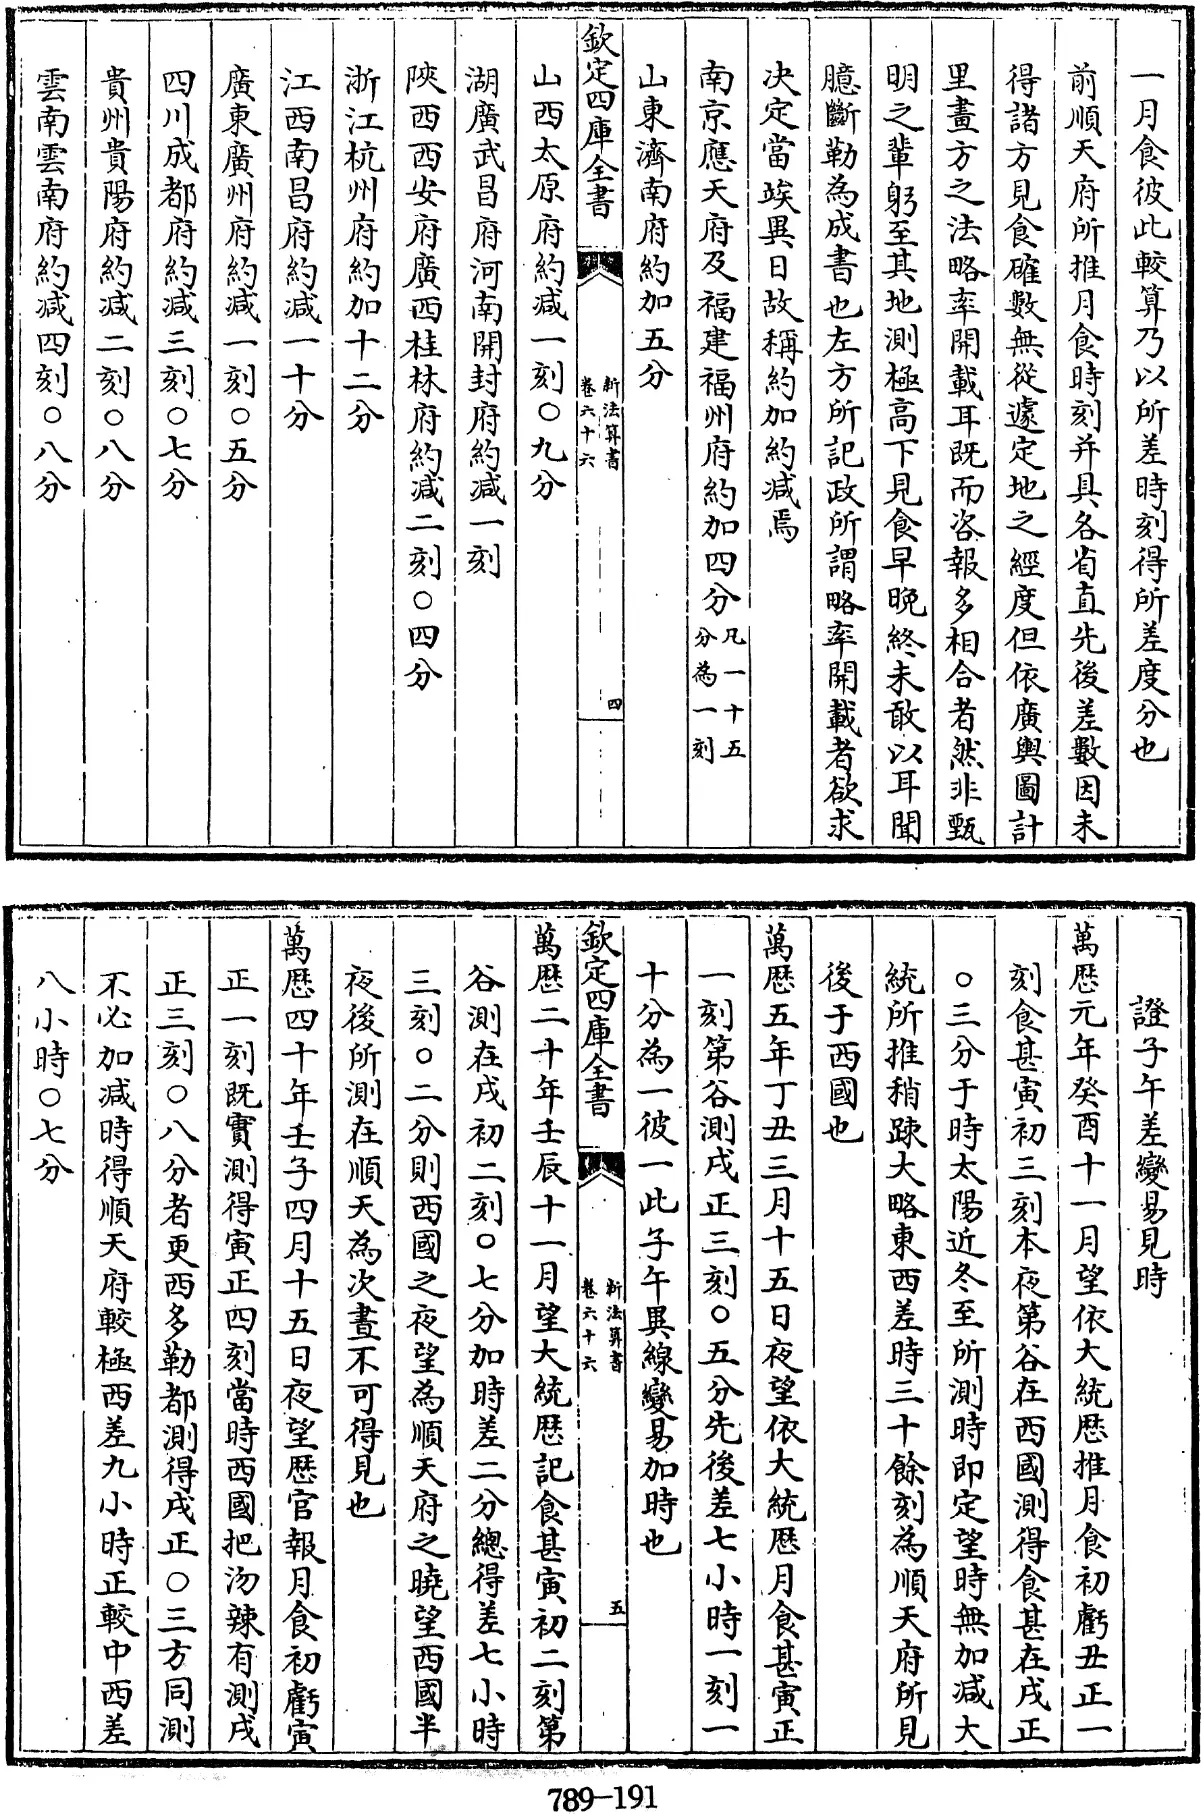 一月食彼此較算乃以所差時刻得所差度分也
前順天府所推月食時刻并具各省直先後差數因未
得諸方見食確數無從遽定地之經度但依廣輿圖計
里畫方之法略率開載耳既而咨報多相合者然非甄
明之輩躬至其地測極高下見食早晚終未敢以耳聞
臆斷勒為成書也左方所記政所謂略率開載者欲求
决定當竢異日故稱約加約减焉
南京應天府及福建福州府約加四分凡一十五分為一刻
山東濟南府約加五分
欽定四庫全書
新法算書
卷六十六
四
山西太原府約减一刻〇九分
湖廣武昌府河南開封府約减一刻
陝西西安府廣西桂林府約减二刻〇四分
浙江杭州府約加十二分
江西南昌府約减一十分
廣東廣州府約减一刻〇五分
四川成都府約减三刻〇七分
貴州貴陽府約减二刻〇八分
雲南雲南府約减四刻〇八分
證子午差變易見時
萬厯元年癸酉十一月望依大統厯推月食初虧丑正一
刻食甚寅初三刻本夜第谷在西國測得食甚在戌正
〇三分于時太陽近冬至所測時即定望時無加减大
統所推稍踈大略東西差時三十餘刻為順天府所見
後于西國也
萬厯五年丁丑三月十五日夜望依大統厯月食甚寅正
一刻第谷測戌正三刻〇五分先後差七小時一刻一
十分為一彼一此子午異線變易加時也
欽定四庫全書
新法算書
卷六十六
五
萬厯二十年壬辰十一月望大統厯記食甚寅初二刻第
谷測在戌初二刻〇七分加時差二分總得差七小時
三刻〇二分則西國之夜望為順天府之曉望西國半
夜後所測在順天為次晝不可得見也
萬厯四十年壬子四月十五日夜望厯官報月食初虧寅
正一刻既實測得寅正四刻當時西國把沕辣有測戌
正三刻〇八分者更西多勒都測得戌正〇三方同測
不必加减時得順天府較極西差九小時正較中西差
八小時〇七分
789-191